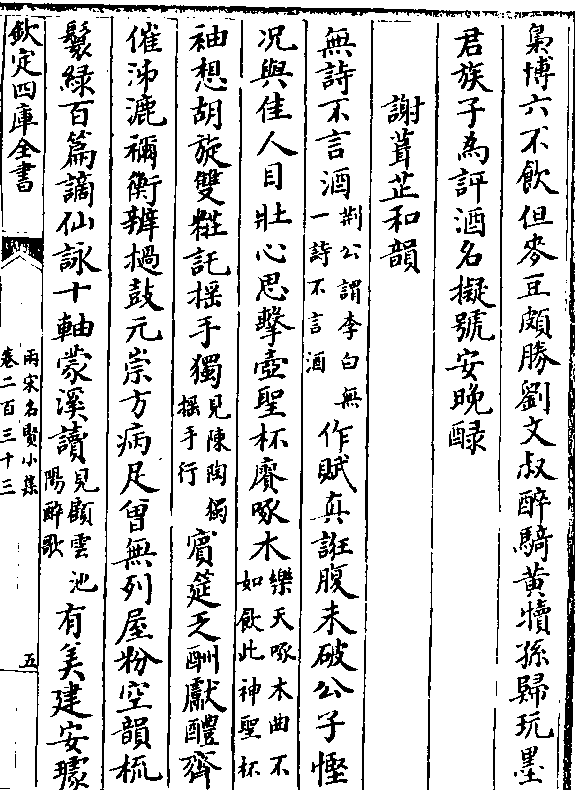 梟博六不飲但麥豆頗勝劉文叔醉騎黃犢孫歸玩墨
君族子為評酒名擬號安晚醁
謝葺芷和韻
無詩不言酒荆公謂李白無一詩不言酒作賦真誑腹未破公子慳
况與佳人目壯心思擊壺聖杯賡啄木樂天啄木曲不如飲此神聖杯
袖想胡旋雙粧託揺手獨見陳陶獨揺手行賓筵乏酬獻醴齊
催沛漉禰衡辨撾鼓元崇方病足曾無列屋粉空韻梳
鬟綠百篇謫仙詠十軸蒙溪讀見顧雲池陽醉歌有美建安璩
欽定四庫全書
兩宋名賢小集
卷二百三十三
五